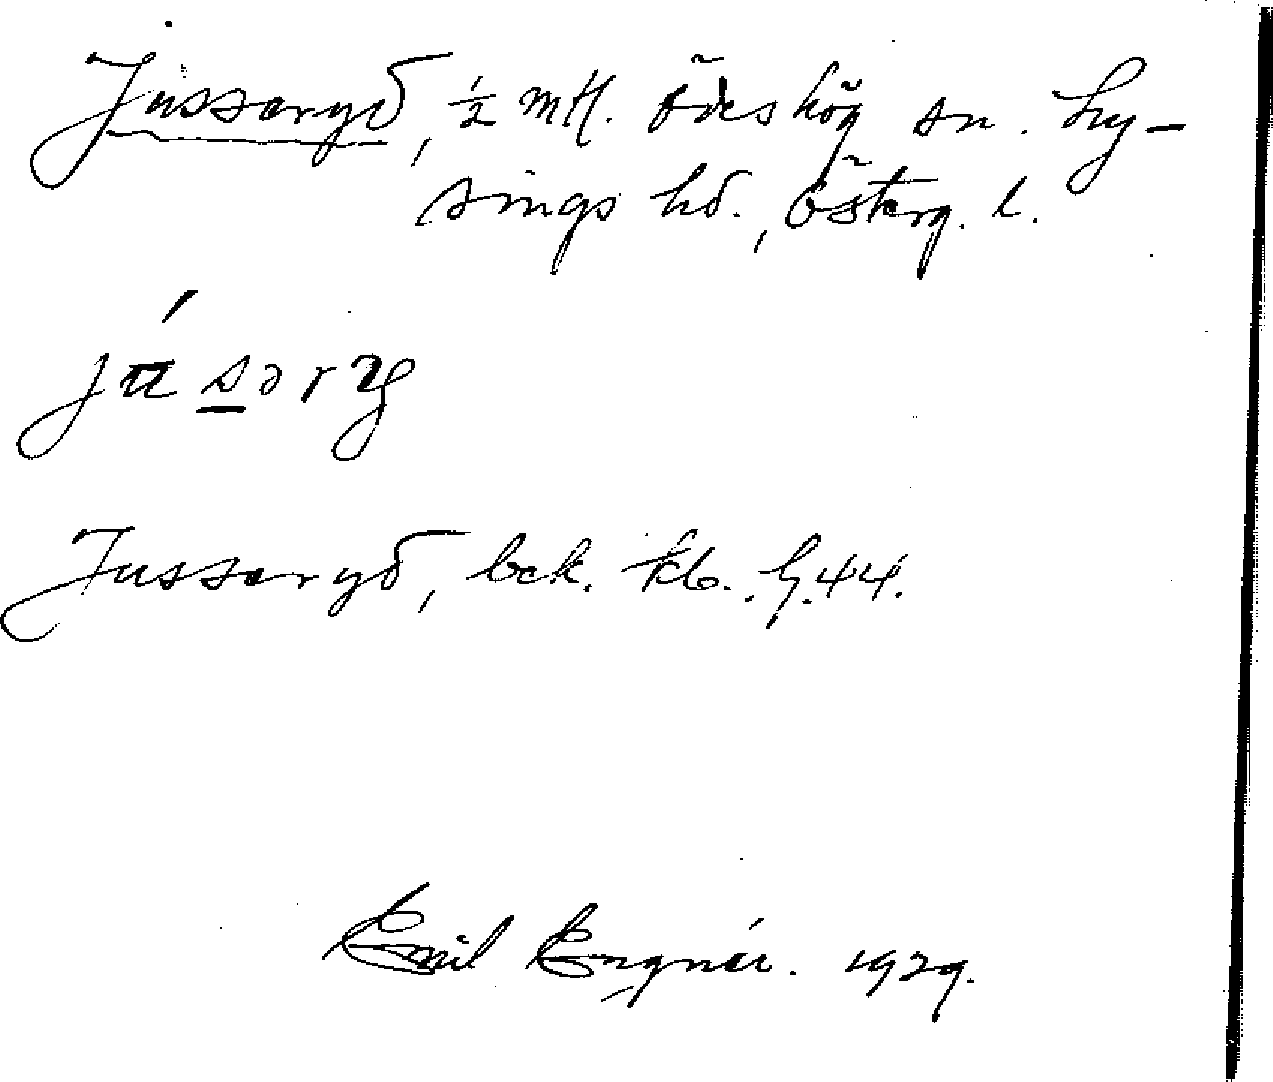 Jussaryd, ½ mtl. Ödeshög sn. Ly-
sings hd., Österg. l.
Jussaryd, bek. kb. G. 44.
Emil Engnér. 1929.